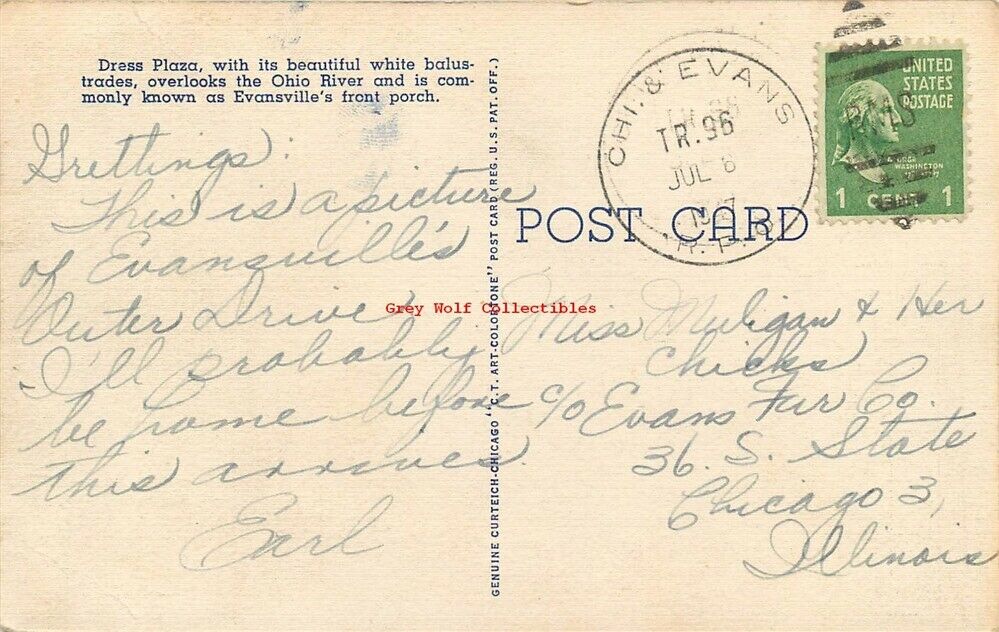 Dress Plaza, with its beautiful white balus-
trades, overlooks the Ohio River and is com-
monly known as Evansville's front porch.
Grettings:
This is a picture
of Evansville's
Outer Drive
I'll probably
be home before
this arrives.
Earl
GENUINE CURTEICH-CHICAGO "C.T. ART-COLORTONE" POST CARD (REG. U.S. PAT. OFF.)
CHI. & EVANS
TR. 96
JUL 8
R. P. O.
UNITED
STATES
POSTAGE
GEORGE
WASHINGTON
1 CENT 1
POST CARD
Grey Wolf Collectibles
Miss Muligan & Her
Chicks
c/o Evans Fur Co.
36. S. State
Chicago 3,
Illinois